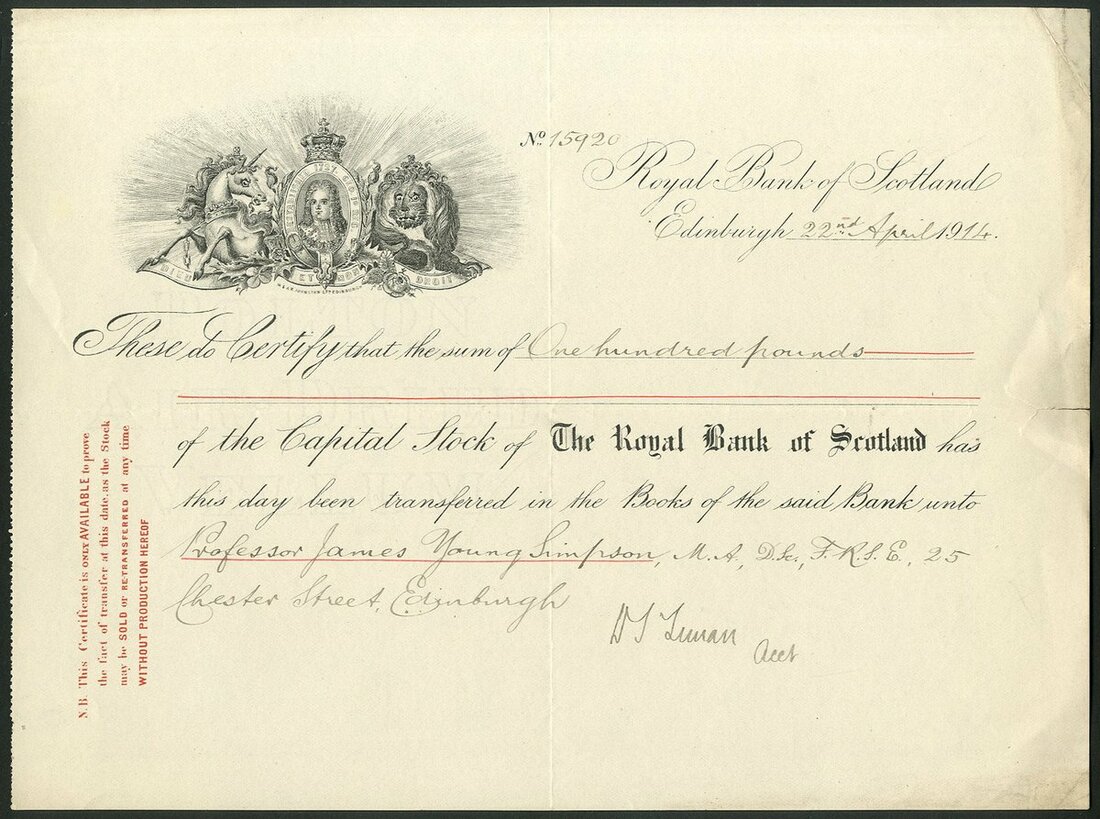 No. 15920
Royal Bank of Scotland
Edinburgh 22nd April 1914.
DIEU ET MON DROIT
These do Certify that the sum of One hundred pounds
of the Capital Stock of The Royal Bank of Scotland has
this day been transferred in the Books of the said Bank unto
Professor James Young Simpson, M.A., D.Sc., F.R.S.E., 25
Chester Street, Edinburgh
Acct
N.B. This Certificate is ONLY AVAILABLE to prove
the fact of transfer at this date, as the Stock
may be SOLD or RETRANSFERRED at any time
WITHOUT PRODUCTION HEREOF